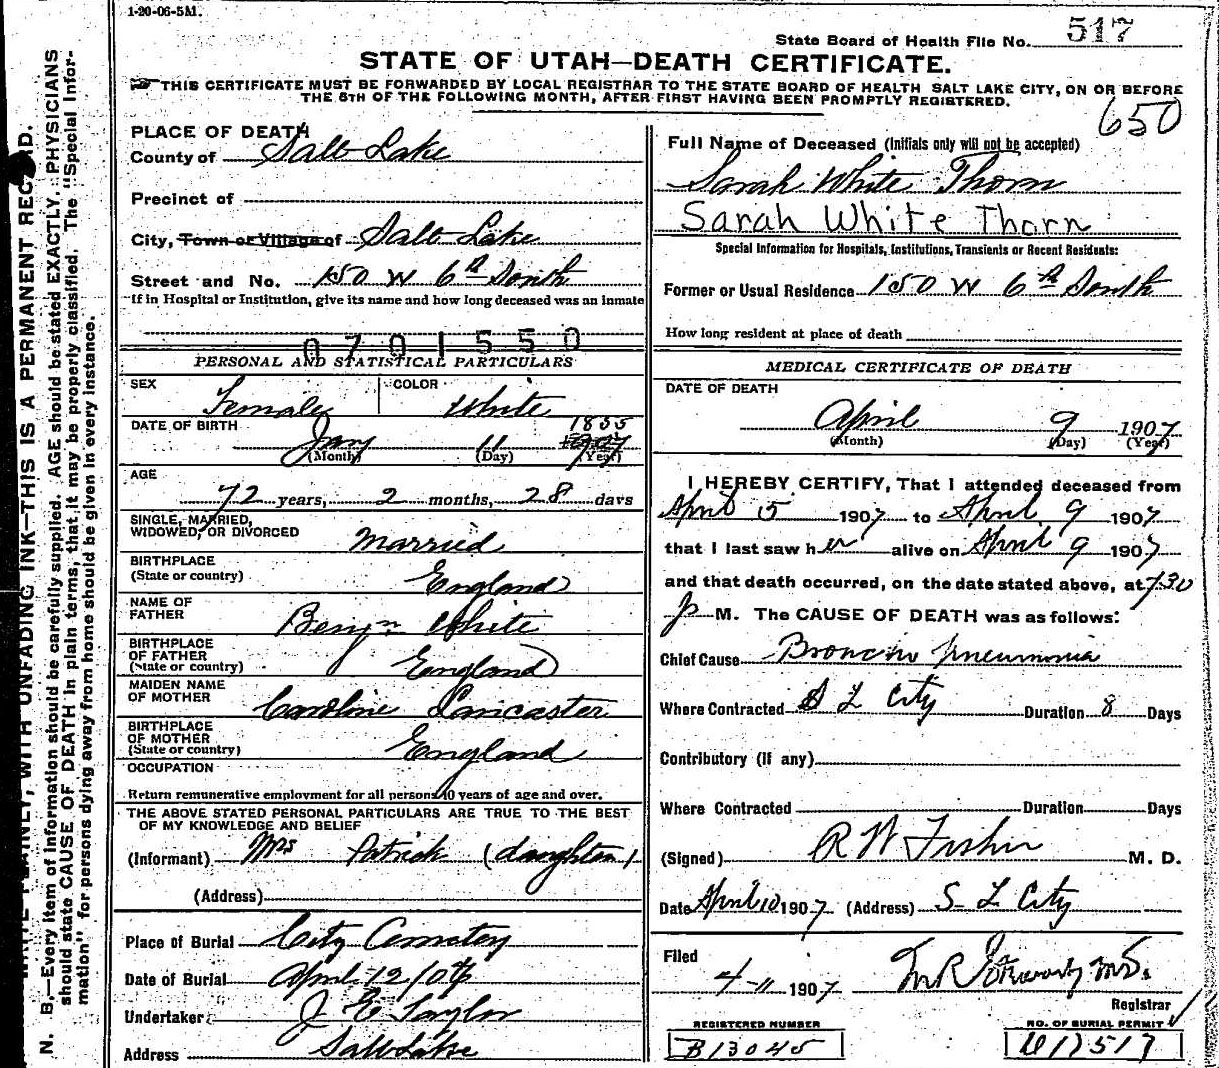 1-20-06-5M.
State Board of Health File No. 517
STATE OF UTAH—DEATH CERTIFICATE.
THIS CERTIFICATE MUST BE FORWARDED BY LOCAL REGISTRAR TO THE STATE BOARD OF HEALTH SALT LAKE CITY, ON OR BEFORE
THE 5TH OF THE FOLLOWING MONTH, AFTER FIRST HAVING BEEN PROMPTLY REGISTERED.
650
PLACE OF DEATH
County of Salt Lake
Precinct of
City, Town or Village of Salt Lake
Street and No. 150 W 6th South
If in Hospital or Institution, give its name and how long deceased was an inmate
0701550
PERSONAL AND STATISTICAL PARTICULARS
SEX Female COLOR White
DATE OF BIRTH Jany 11 1835
(Month) (Day) (Year)
AGE
72 years, 2 months, 28 days
SINGLE, MARRIED,
WIDOWED, OR DIVORCED Married
BIRTHPLACE
(State or country) England
NAME OF
FATHER Benjn White
BIRTHPLACE
OF FATHER
(State or country) England
MAIDEN NAME
OF MOTHER Caroline Lancaster
BIRTHPLACE
OF MOTHER
(State or country) England
OCCUPATION
Return remunerative employment for all persons 10 years of age and over.
THE ABOVE STATED PERSONAL PARTICULARS ARE TRUE TO THE BEST
OF MY KNOWLEDGE AND BELIEF
(Informant) Mrs Patrick (daughter)
(Address)
Place of Burial City Cemetery
Date of Burial April 12/07
Undertaker J E Taylor
Address Salt Lake
Full Name of Deceased (Initials only will not be accepted)
Sarah White Thorn
Sarah White Thorn
Special Information for Hospitals, Institutions, Transients or Recent Residents:
Former or Usual Residence 150 W 6th South
How long resident at place of death
MEDICAL CERTIFICATE OF DEATH
DATE OF DEATH
April 9 1907
(Month) (Day) (Year)
I HEREBY CERTIFY, That I attended deceased from
April 5 1907 to April 9 1907
that I last saw her alive on April 9 1907
and that death occurred, on the date stated above, at 7.30
p M. The CAUSE OF DEATH was as follows:
Chief Cause Broncho pneumonia
Where Contracted S L City Duration 8 Days
Contributory (if any)
Where Contracted Duration Days
(Signed) R W Fisher M. D.
Date April 10 1907 (Address) S L City
Filed
4-11 1907
Registrar
REGISTERED NUMBER
B13045
NO. OF BURIAL PERMIT
N. B.—Every item of information should be carefully supplied. AGE should be stated EXACTLY. PHYSICIANS
should state CAUSE OF DEATH in plain terms, that it may be properly classified. The "Special Infor-
mation" for persons dying away from home should be given in every instance.
WITH UNFADING INK—THIS IS A PERMANENT